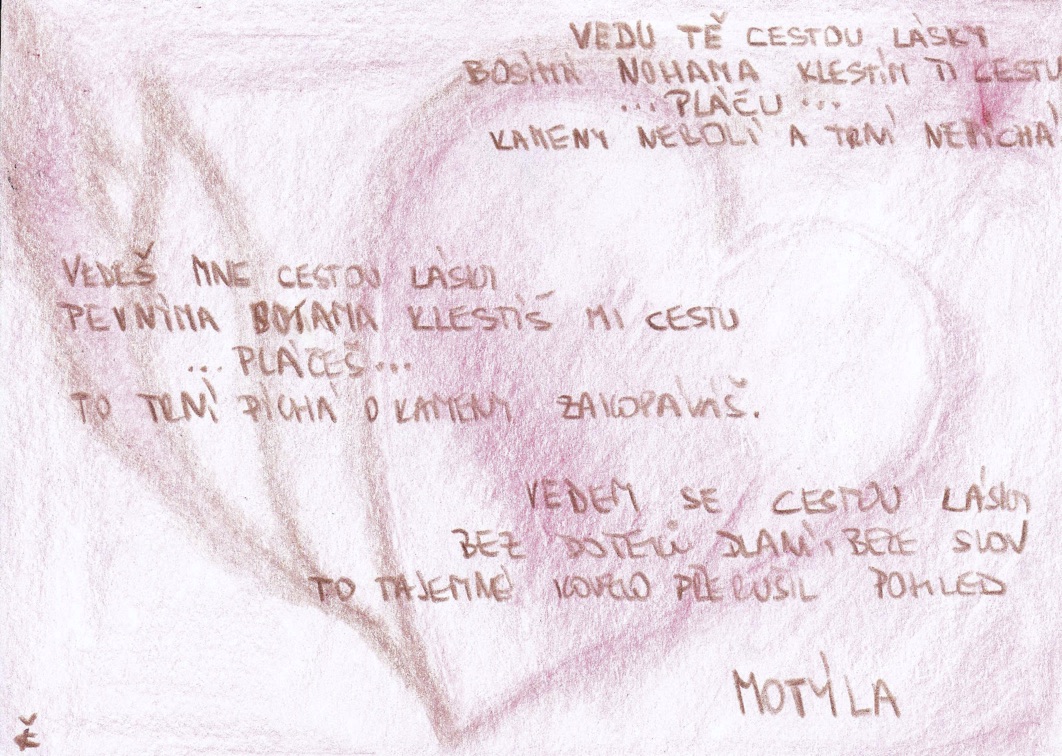 VEDU TĚ CESTOU LÁSKY
BOSÝMA NOHAMA KLESTÍM TI CESTU
...PLÁČU...
KAMENY NEBOLÍ A TRNÍ NEPÍCHÁ
VEDEŠ MNE CESTOU LÁSKY
PEVNÝMA BOTAMA KLESTÍŠ MI CESTU
...PLÁČEŠ...
TO TRNÍ PÍCHÁ O KAMENY ZAKOPÁVÁŠ.
VEDEM SE CESTOU LÁSKY
BEZ DOTEKŮ DLANÍ, BEZE SLOV
TO TAJEMNÉ KOUZLO PŘERUŠIL POHLED
MOTÝLA
Č